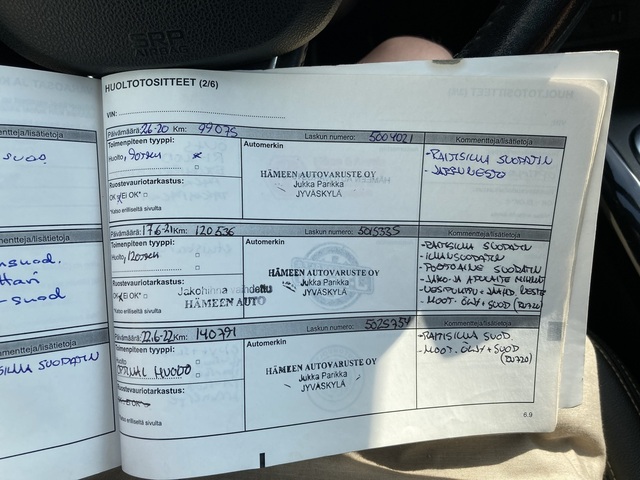 SRP
AIRBAG
HUOLTOTOSITTEET (2/6)
VIN:
mentteja/lisätietoja
Päivämäärä: 2.6-20 Km: 99075 Laskun numero: 5004021 Kommentteja/lisätietoja
Toimenpiteen tyyppi:
Huolto, 90TKM x
Ruostevauriotarkastus:
OK x/Ei OK* □
*Katso erilliseltä sivulta
Automerkin
HÄMEEN AUTOVARUSTE OY
Jukka Parikka
JYVÄSKYLÄ
-RAITISILMA SUODATIN
-JARRUNESTE
Päivämäärä: 17.6-21 Km: 120536 Laskun numero: 5015335 Kommentteja/lisätietoja
Toimenpiteen tyyppi:
Huolto, 120TKM
Ruostevauriotarkastus:
*Katso erilliseltä sivulta
Automerkin
Jakohihna vaihdettu
HÄMEEN AUTO
HÄMEEN AUTOVARUSTE OY
Jukka Parikka
JYVÄSKYLÄ
-RAITISILMA SUODATIN
-ILMANSUODATIN
-POLTTOAINE SUODATIN
-JAKO JA APULAITE HIHNAT
-VESIPUMPPU + JÄÄHD. NESTE
-MOOT. ÖLJY + SUOD (RN720)
mentteja/lisätietoja
Päivämäärä: 22.6-22 Km: 140791 Laskun numero: 5025754 Kommentteja/lisätietoja
Toimenpiteen tyyppi:
Huolto
VÄLI HUOLTO
Ruostevauriotarkastus:
*Katso erilliseltä sivulta
Automerkin
HÄMEEN AUTOVARUSTE OY
Jukka Parikka
JYVÄSKYLÄ
-RAITISILMA SUOD.
-MOOT. ÖLJY + SUOD
(RN720)
mentteja/lisätietoja
6.9